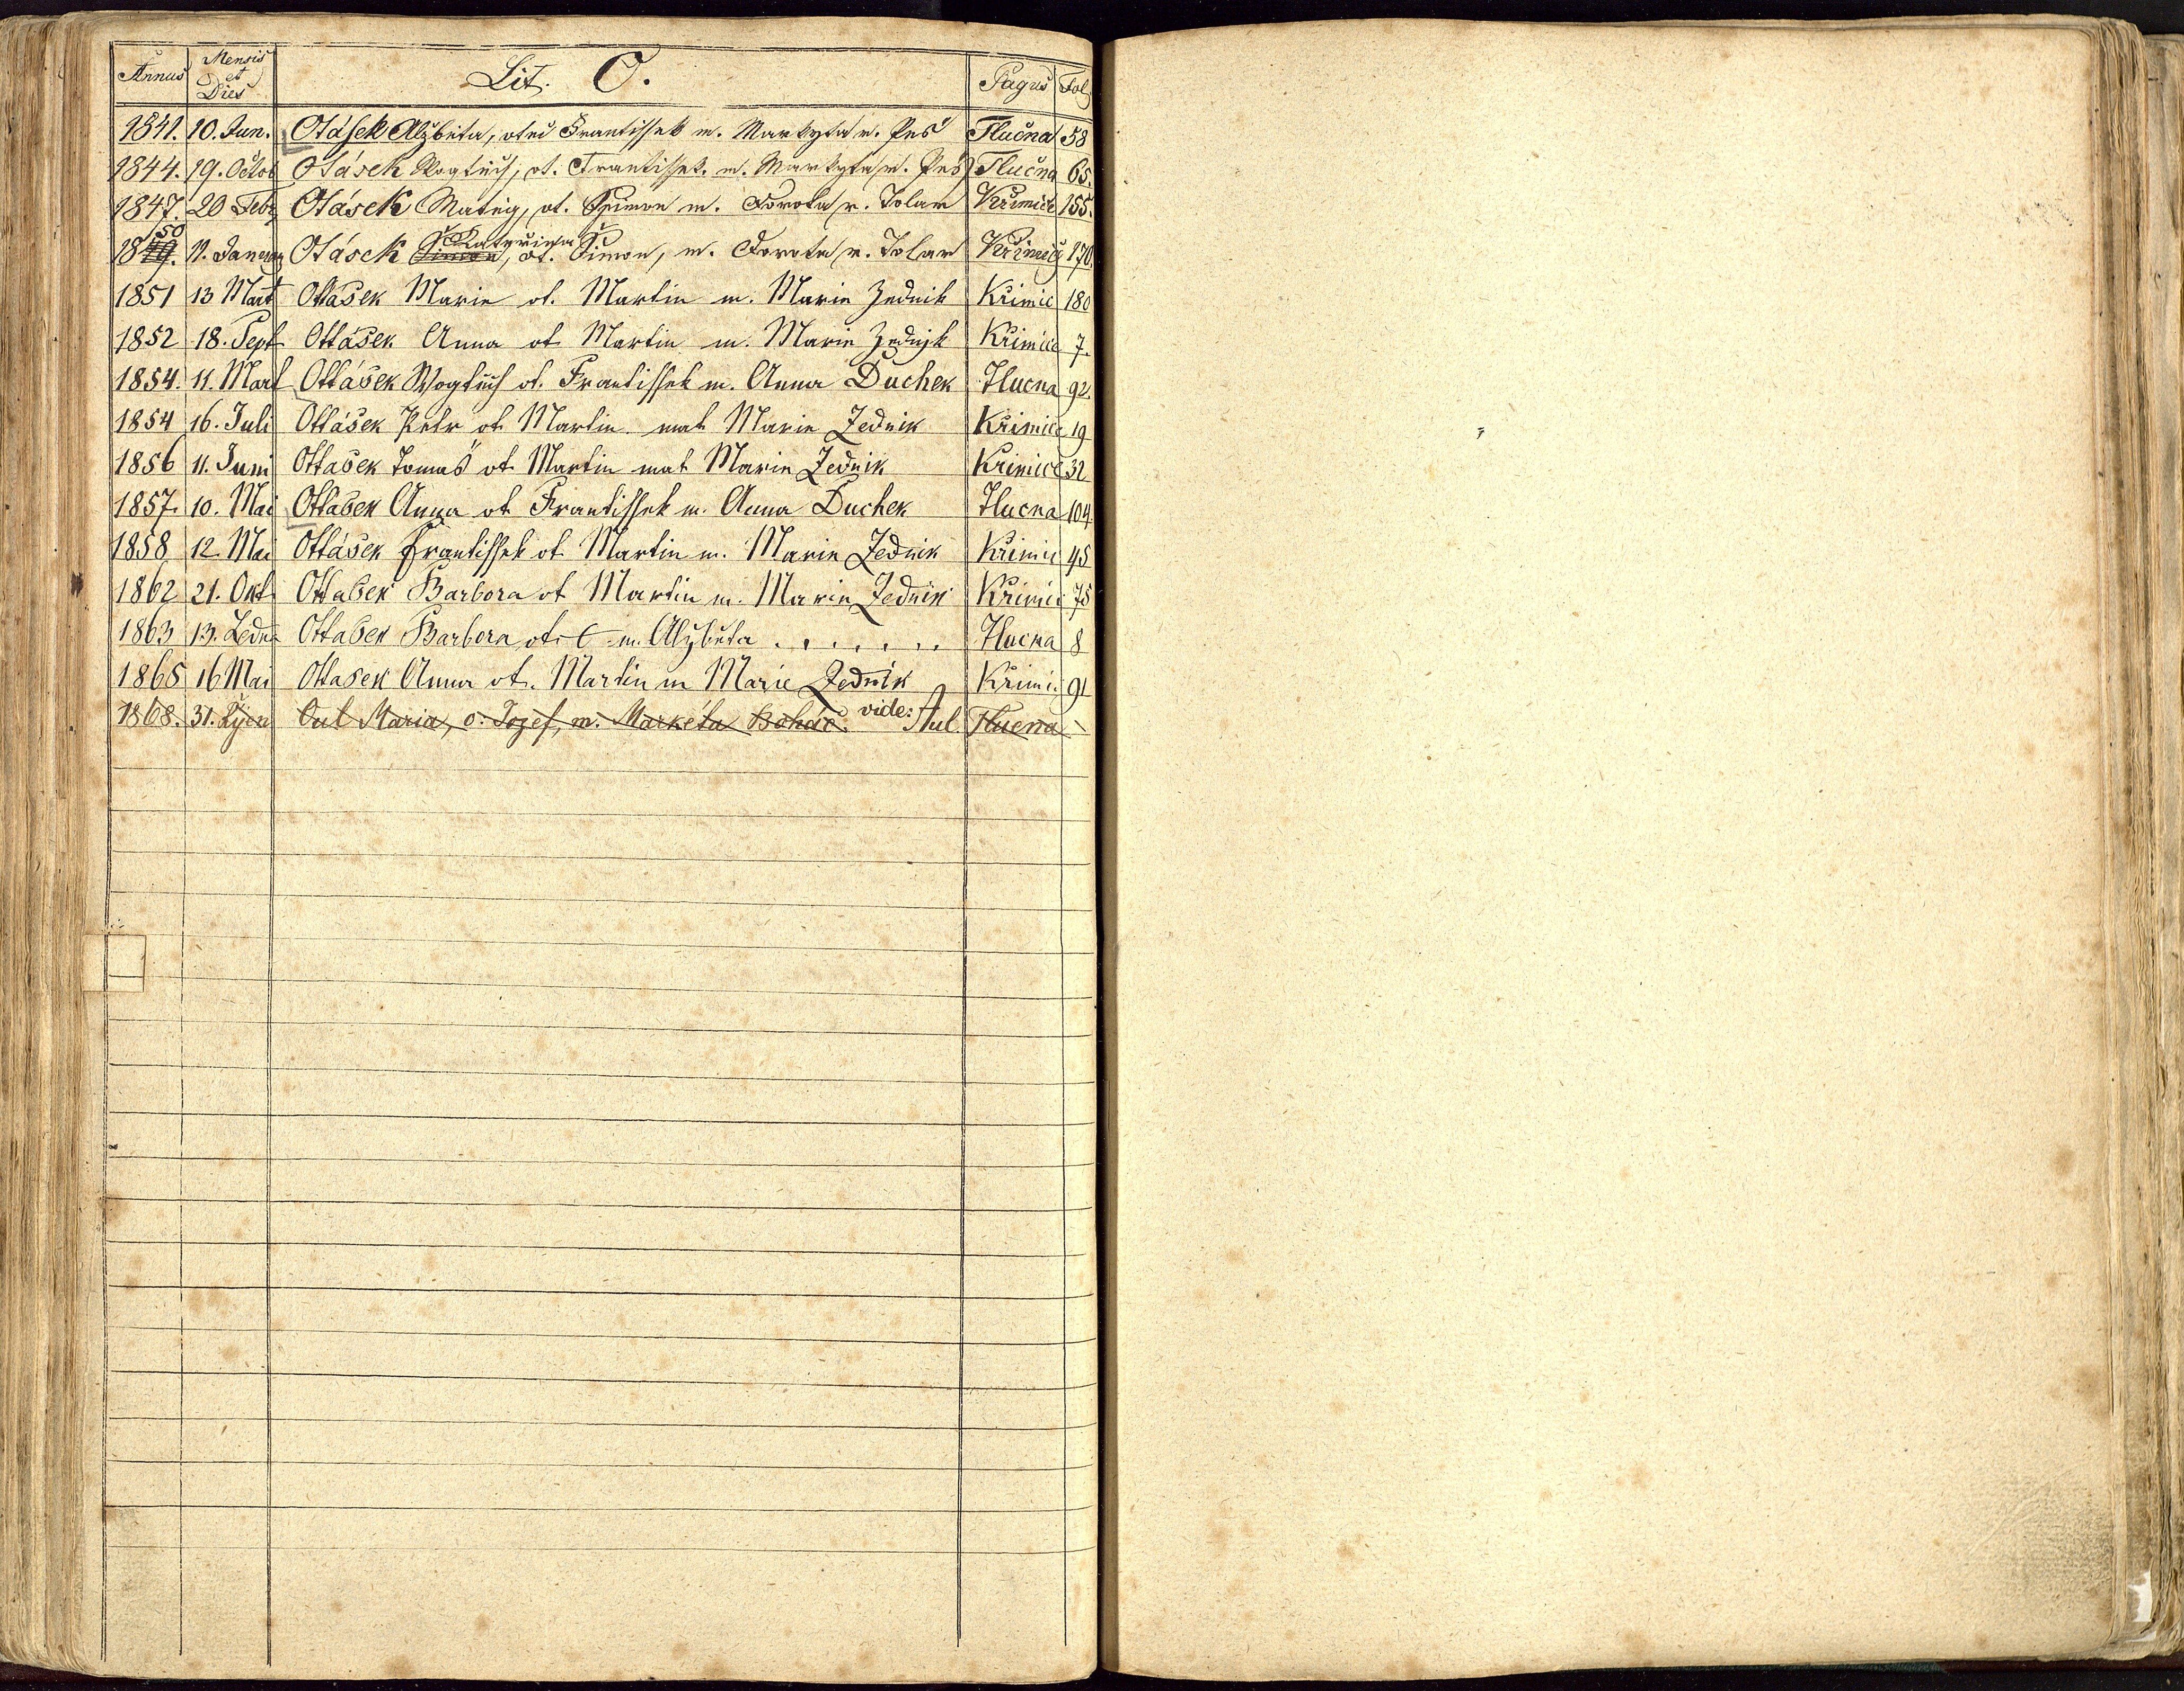 Annus Mensis et Dies Lit. O. Pagus Fol.
1841. 10. Jun. Otásek Alžběta, otec Frantissek m. Markyta r. Peš Tlučna 58
1844. 19. Octob Otásek Wogtěch, ot. Frantissek. m. Markyta r. Peš Tlučna 65.
1847. 20 Febr Otásek Matěg, ot. Ssimon m. Dorota r. Tolar Křimice 155.
50 Kateřina
1849. 11. Januar Otásek Simon, ot. Šimon, m. Dorota r. Tolar Křimice 170.
1851 13 Mart Ottásek Marie ot. Martin m. Marie Zednik Křimic 180
1852 18. Sept Ottásek Anna ot Martin m. Marie Zednjk Křimice 7.
1854. 11. Mart Ottásek Wogtěch ot. Frantissek m. Anna Duchek Tlucna 92.
1854 16. Juli Ottásek Petr ot Martin mat Marie Zednik Křimice 19
1856 11. Juni Ottasek Tomaš ot Martin mat Marie Zednik Křimice 32
1857. 10. Mai Ottasek Anna ot Frantissek m. Anna Duchek Tlucna 104.
1858 12. Mai Ottásek Frantissek ot Martin m. Marie Zednik Křimic 45
1862 21. Okt. Ottasek Barbora ot Martin m. Marie Zednik Křimic 75
1863 13. Ledn Ottasek Barbora ot. m. Alžběta . . . . . . Tlucna 8
1865 16 Mai Ottasek Anna ot. Martin m Marie Zednik Křimic 91
1868. 31. Říjen Oul Maria, o. Jozef, m. Markéta Boháč. vide: Aul. Tlucna